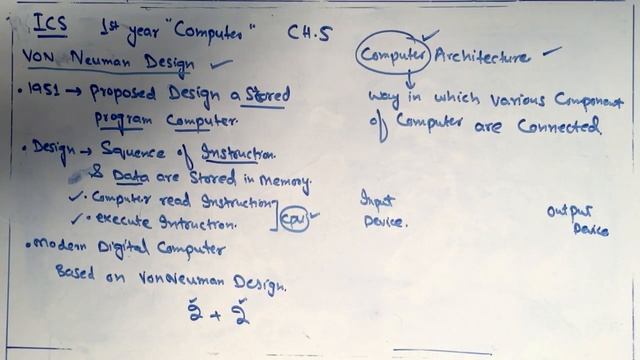 ICS 1st year "Computer" CH.5
VON Neuman Design
• 1951 → proposed Design a Stored
program Computer.
• Design → Squence of Instruction.
& Data are Stored in memory.
• Computer read Instruction
• execute Intruction.
CPU
• modern Digital Computer
Based on VonNeuman Design.
2 + 2
Computer Architecture
way in which various Component
of Computer are Connected.
Input
Device.
output
Device